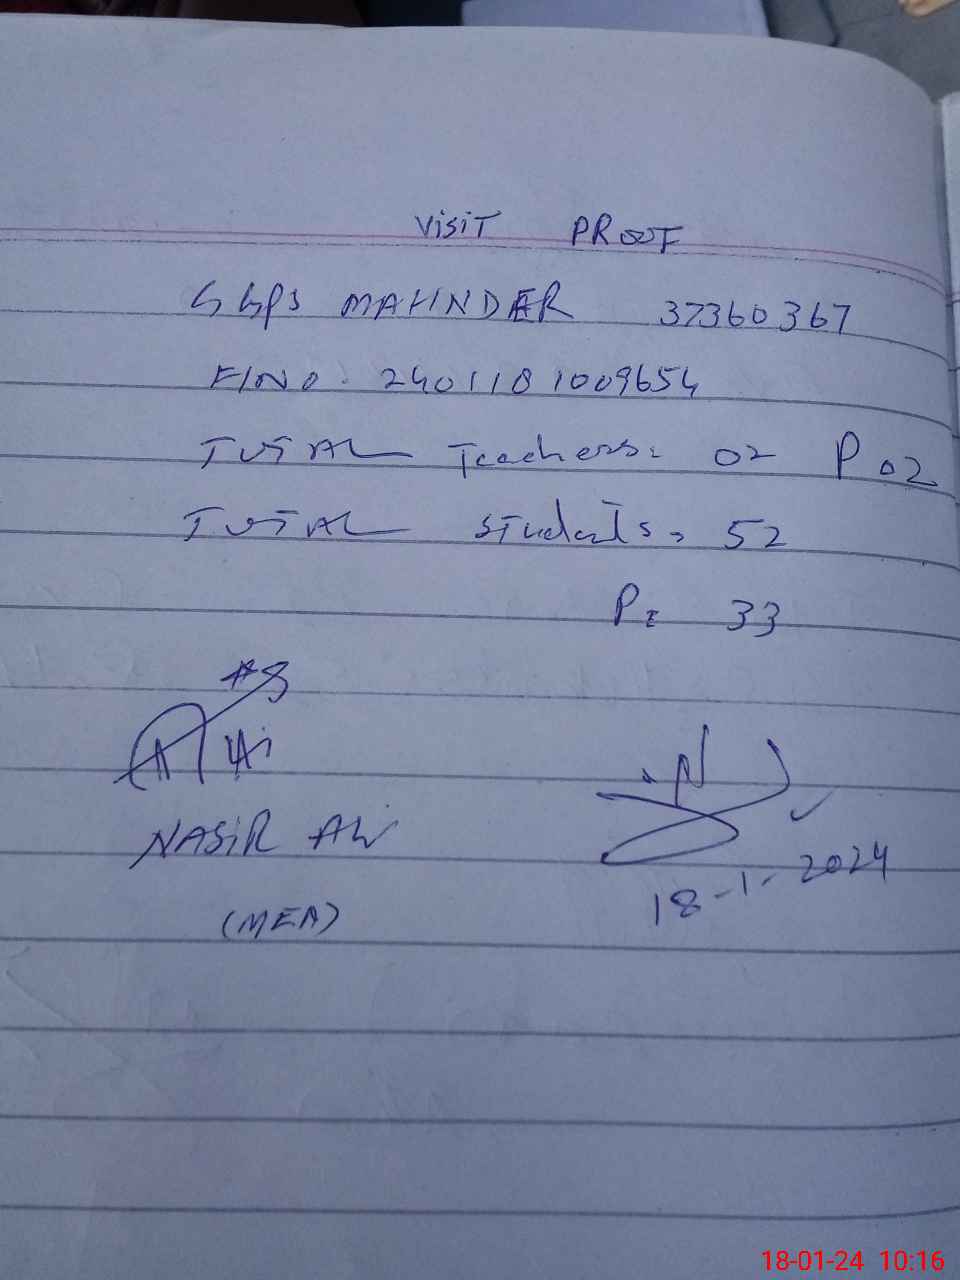 VISIT PROOF
GGPS MAHNDER 37360367
F/NO. 2401181009654
TOTAL Teachers: 02 P 02
TOTAL Students = 52
P= 33
NASIR ALI
(MEA)
18-1-2024
18-01-24 10:16